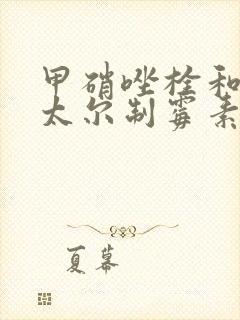 甲硝唑栓和
太尔制霉素
夏幕